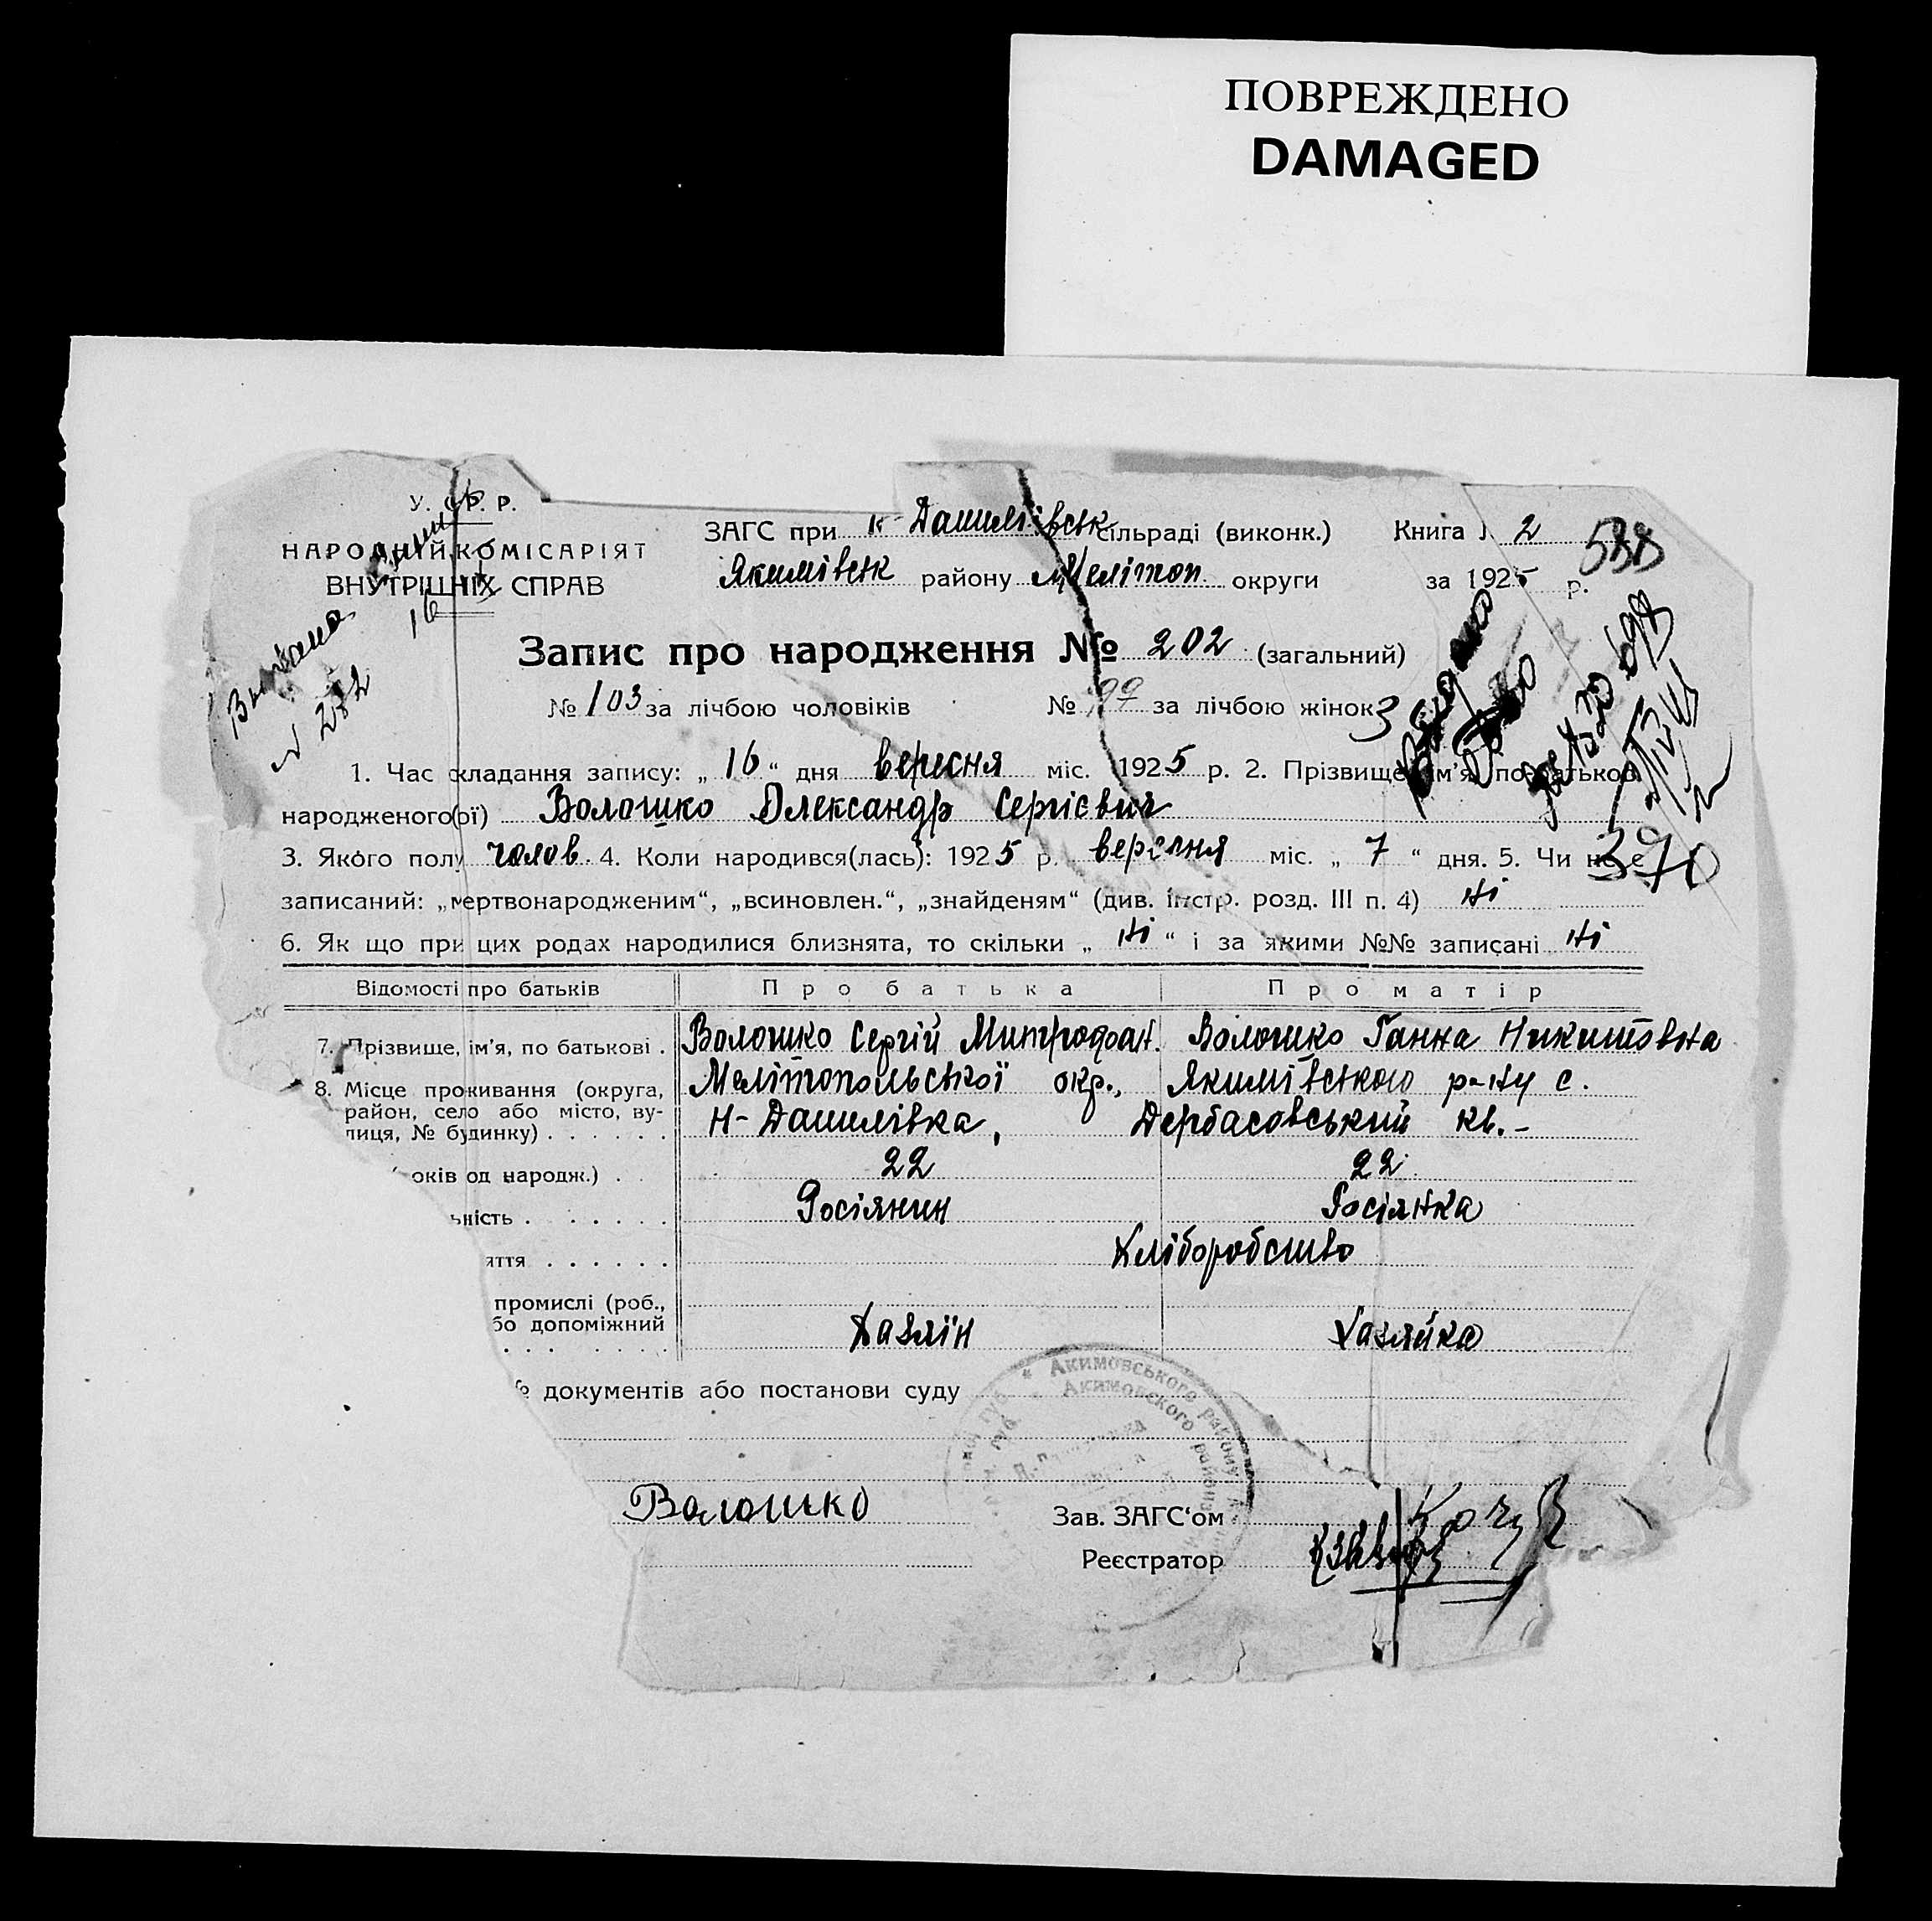 ПОВРЕЖДЕНО
DAMAGED
У. С. Р. Р.
НАРОДНІЙ КОМІСАРІЯТ
ВНУТРІШНІХ СПРАВ
ЗАГС при Н-Данилівськ сільраді (виконк.)
Книга № 2
538
Якимівськ району Меліτοп. округи
за 1925 р.
16
Запис про народження № 202 (загальний)
№ 103 за лічбою чоловіків № 99 за лічбою жінок
N 282
1. Час складання запису: „ 16 “ дня вересня міс. 1925 р. 2. Прізвище, ім’я, по-батькові
народженого(ої) Волошко Олександр Сергієвич
3. Якого полу чолов. 4. Коли народився(лась): 1925 р. вересня міс. „ 7 “ дня. 5. Чи не є
370
записаний: „мертвонародженим“, „всиновлен.“, „знайденям“ (див. інстр. розд. III п. 4) Ні
6. Як що при цих родах народилися близнята, то скільки „ Ні “ і за якими №№ записані Ні
Відомості про батьків Про батька Про матір
7. Прізвище, ім’я, по батькові . Волошко Сергій Митрофан. Волошко Ганна Никитовна
8. Місце проживання (округа, район, село або місто, вулиця, № будинку) . . . . . .
Мелітопольської окр., Якимівського р-ну с.
Н-Данилівка, Дербасовський кв.-
оків од народж.) . . 22 22
ьність . . . . . . Росіянин Росіянка
яття . . . . . . Хліборобство
промислі (роб.,
бо допоміжний
. . . . . . . Хазяїн Хазяйка
№ документів або постанови суду
Акимовського району
Акимовского
Волошко
Зав. ЗАГС‘ом
Реєстратор